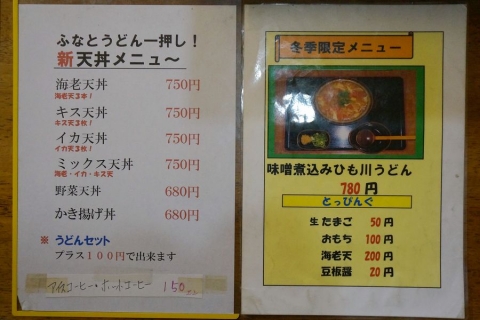 ふなとうどん一押し！
新 天丼メニュ～
海老天丼 750円
海老天3本！
キス天丼 750円
キス天3枚！
イカ天丼 750円
イカ天3枚！
ミックス天丼 750円
海老・イカ・キス天
野菜天丼 680円
かき揚げ丼 680円
※ うどんセット
プラス100円で出来ます
アイスコーヒー・ホットコーヒー 150
冬季限定メニュー
味噌煮込みひも川うどん
780 円
とっぴんぐ
生 たまご 50 円
おもち 100 円
海老天 200 円
豆板醤 20 円